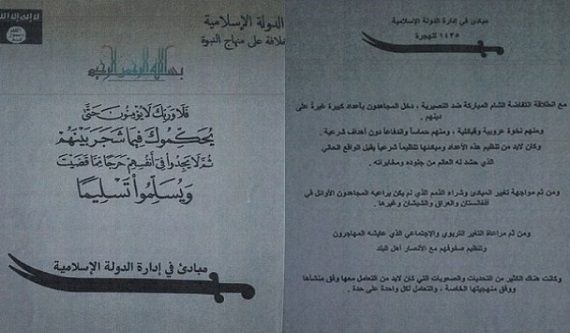 الدولة الإسلامية
خلافة على منهاج النبوة
بسم الله الرحمن الرحيم
فلا وربك لا يؤمنون حتى
يحكموك فيما شجر بينهم
ثم لا يجدوا في أنفسهم حرجا مما قضيت
ويسلموا تسليما
مبادئ في إدارة الدولة الإسلامية
مبادئ في إدارة الدولة الإسلامية
١٤٣٥ للهجرة
مع انطلاقة انتفاضة الشام المباركة ضد النصيرية ، دخل المجاهدون بأعداد كبيرة غيرة على
دينهم .
ومنهم نخوة عروبية وقبائلية ، ومنهم حماساً واندفاعاً دون أهداف شرعية .
وكان لابد من تنظيم هذه الأعداد ومبكنها تنظيماً شرعياً يقبل الواقع الحالي
الذي حشد له العالم من جنوده ومخابراته .
ومن ثم مواجهة تغير المبادئ وشراء الذمم الذي لم يكن يراعيه المجاهدون الأوائل في
أفغانستان والعراق والشيشان وغيرها .
ومن ثم مراعاة التغير التربوي والإجتماعي الذي عايشه المهاجرون
وتنظيم صفوفهم مع الأنصار أهل البلد
وكانت هناك الكثير من التحديات والصعوبات التي كان لابد من التعامل معها وفق منشأها
ووفق منهجيتها الخاصة ، والتعامل لكل واحدة على حدة .